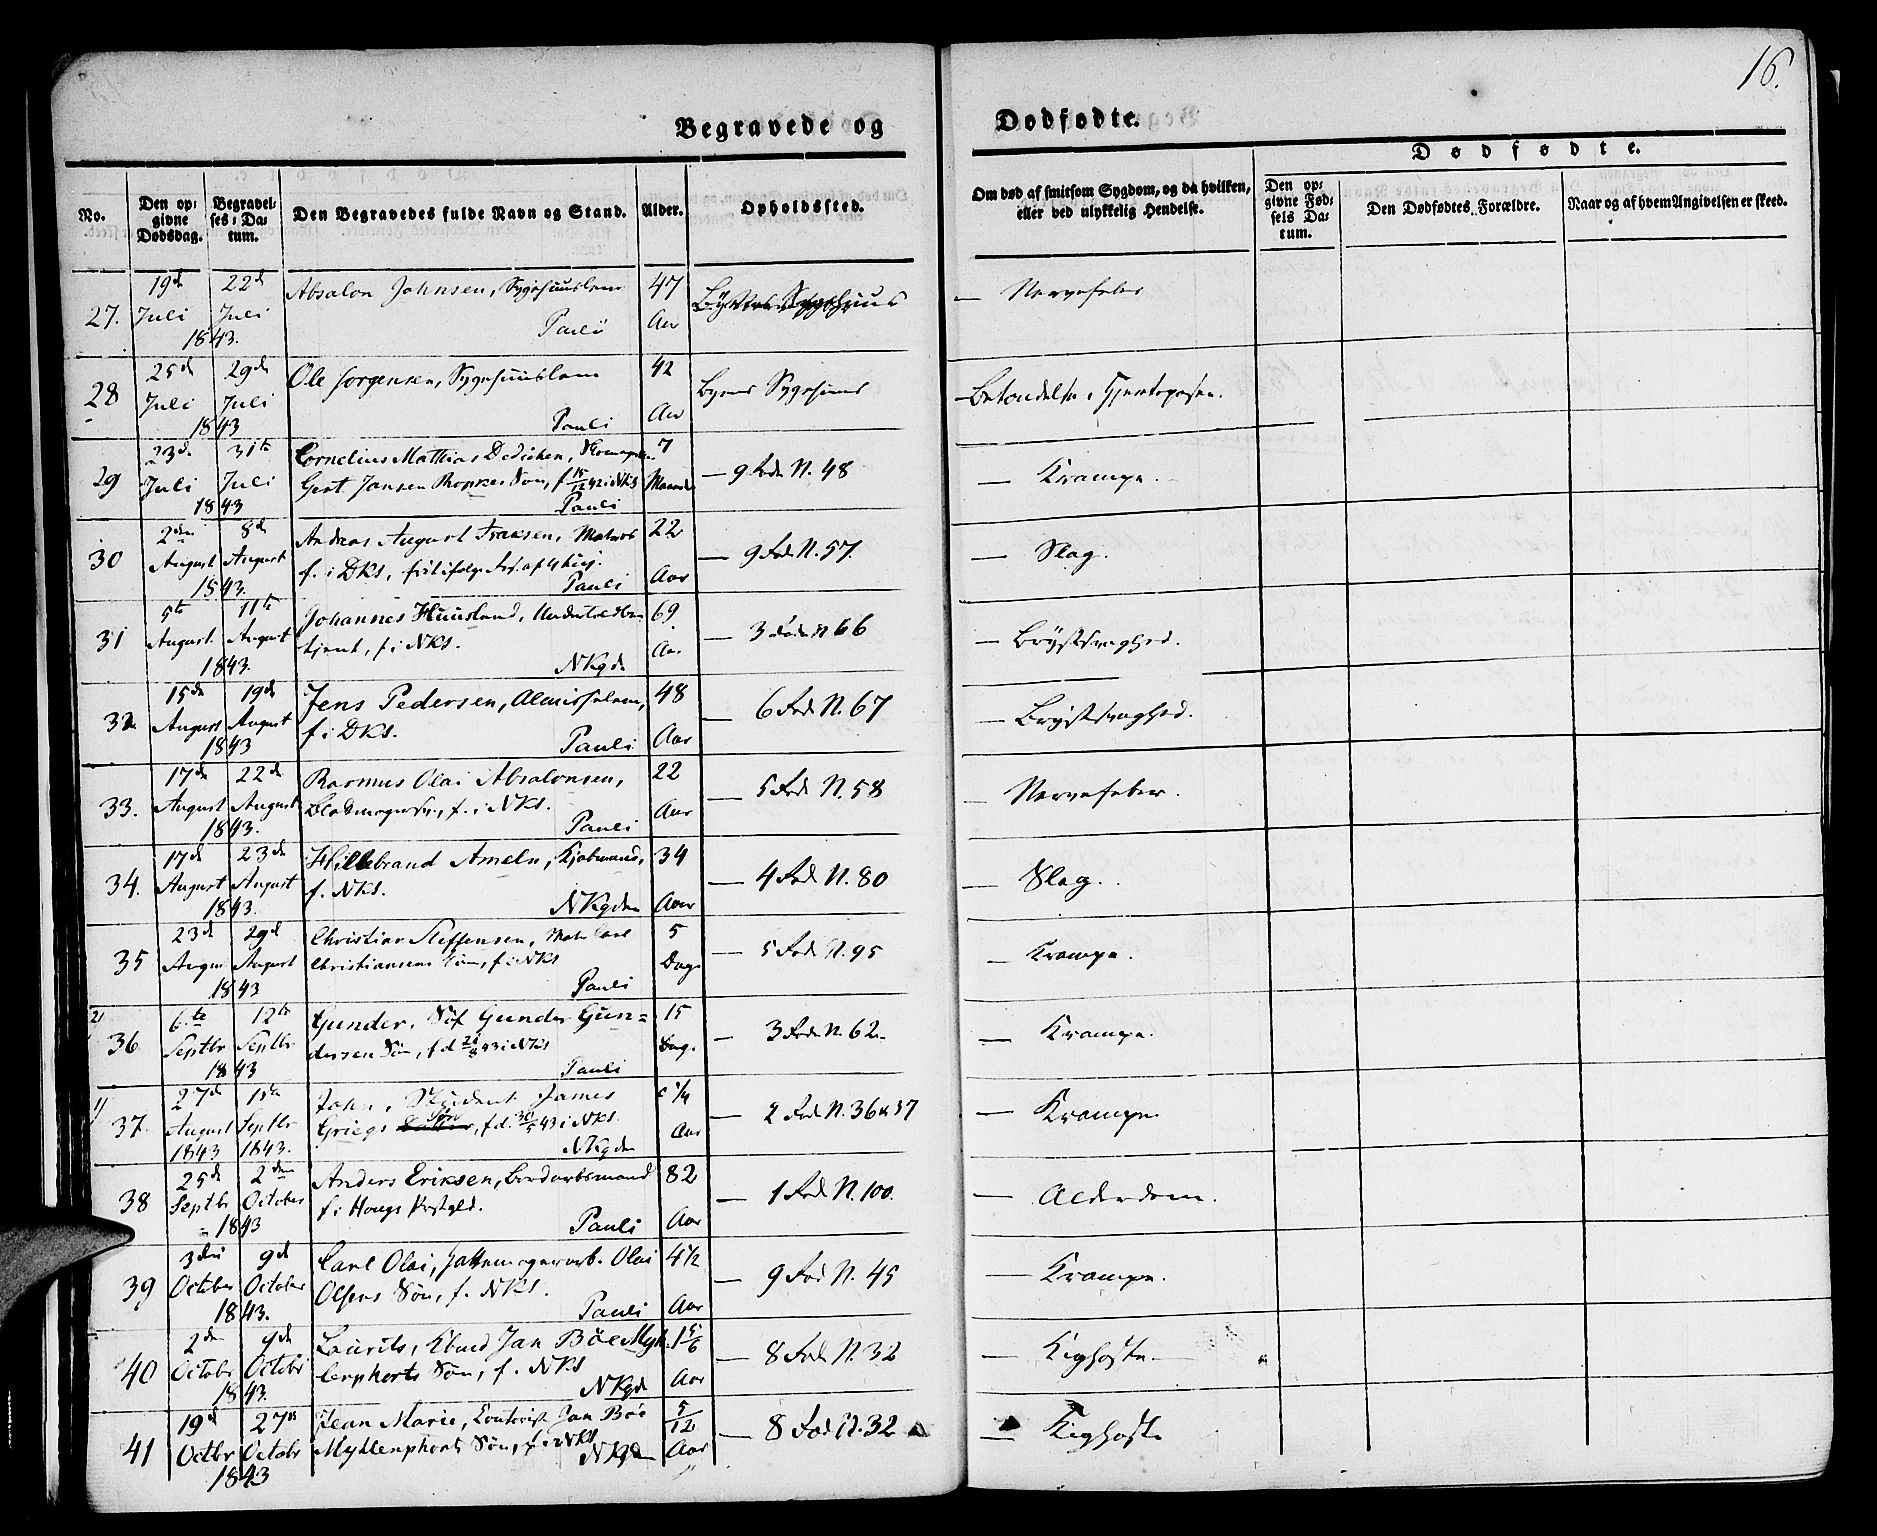 16.
Begravede og Dødfødte.
Dødfødte.
No.
Den opgivne Dødsdag.
Begravelses-Datum.
Den Begravedes fulde Navn og Stand.
Alder.
Opholdssted.
Om død af smitsom Sygdom, og da hvilken, eller ved ulykkelig Hendelse.
Den opgivne Fødsels Datum.
Den Dødfødtes Forældre.
Naar og af hvem Angivelsen er skeed.
27. 19de Juli 22de Juli 1843. Absalon Johnsen, Sygehuuslem Pauli 47 Aar Sygehuus — Nervefeber
28 25de Juli 29de Juli 1843 Ole Jørgensen, Sygehuuslem Pauli 42 Aar Byens Sygehuus — Betændelse i Hjerteposen.
29 23de Juli 31te Juli 1843 Cornelius Mathias Dedichen, Skomager
Gert Jansen Ropkes Søn, f. 15/12 42 i NKS Pauli 7 Maaneder — 9 Rode N. 48 — Krampe.
30 2den August 8de August 1843. Andreas August Isaksen, Matros
f. i DKS, Pauli 22 Aar — 9 Rode N. 57. — Slag.
31 5te August 11te August 1843. Johannes Huusland, Undertoldbe
tjent, f i NKS. NKgde 69 Aar — 3 Rode N 66 — Brÿstsvaghed.
32. 15de August 19de August 1843 Jens Pedersen, Almisselem,
f i DKS. Pauli 48 Aar — 6 Rode N. 67 — Brÿstsvaghed.
33. 17de August 22de August 1843. Rasmus Olai Absalonsen,
f. i NKS. Pauli 22 Aar — 5 Rode N. 58 — Nervefeber.
34. 17de August 23de August 1843. Hillebrand Ameln, Kjøbmand,
f. NKS. NKgden 34 Aar — 4 Rode N. 80 — Slag.
35 23de August 29de August 1843 Christian Steffensen, Matr Carl
Christiansens Søn, f i NKS Pauli 5 Dage — 5 Rode N. 95 — Krampe.
21
36 6te Septbr 12te Septbr 1843 Gunder, Gunder Gun=
dersens Søn, f d 21/8 43 i NKS Pauli 15 Dage — 3 Rode N. 62. — Krampe.
11
37. 27de August 1843 1ste Septbr 1843. John, Skibident James
Griegs Søn, f d. 30/5 43 i NKS. NKgden 1/4 Aar — 2 Rode N. 36 & 37 — Krampe.
38 25de Septbr 2den October 1843 Anders Eriksen, Bordarbsmand
f i Hougs Prstgld. Pauli 82 Aar — 1 Rode N. 100. — Alderdom.
39 3die October 9de October 1843. Carl Olai, Hattemagerarb. Olai
Olsens Søn, f. NKS. Pauli 4 1/2 Aar — 9 Rode N. 45 — Krampe.
40 2den October 9de Octobr 1843. Laurits, Kbmd Jan Bøe Myh
lenphorts Søn, f. NKS NKgde 1 5/6 Aar — 8 Rode N. 32 — Kighoste.
41 19de Octbr 27de Octobr 1843 Jean Marie, Contorist Jan Bøe
Myhlenphorts Søn, f. i NKS NKgden 5/12 Aar — 8 Rode N. 32 — Kighoste